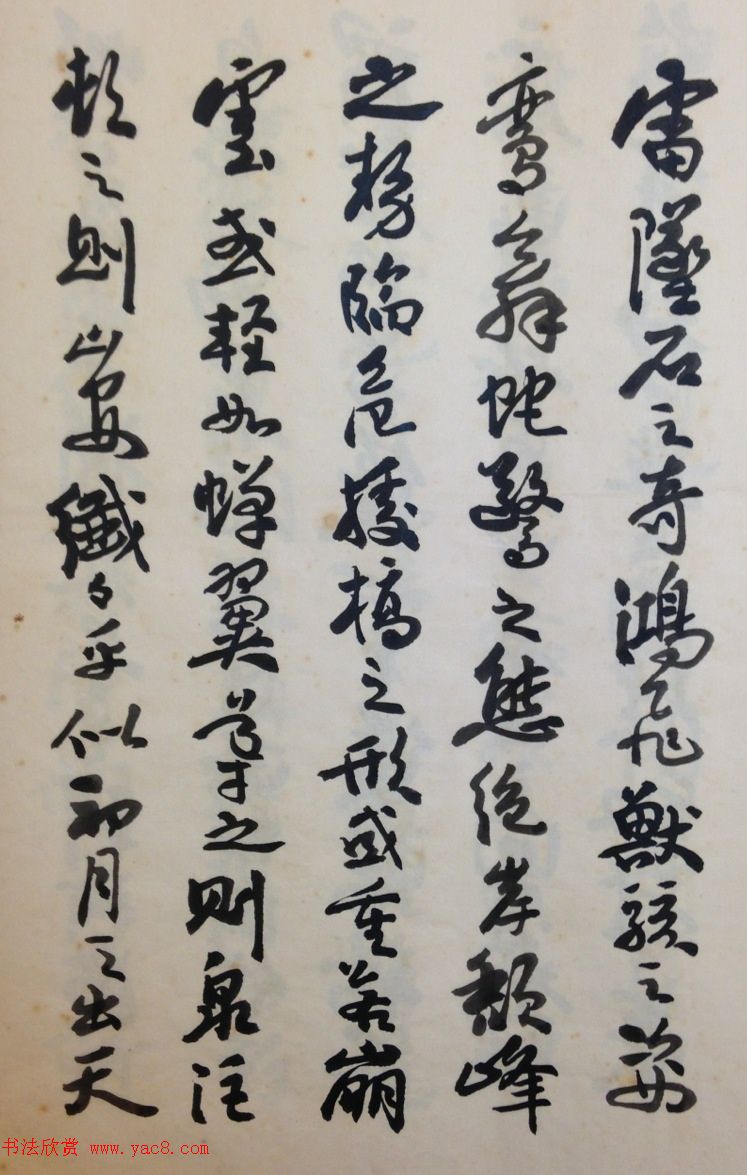 雷墜石之奇鴻飛獸駭之姿
鸾舞蛇驚之態绝岸頹峰
之勢臨危據槁之形或重若崩
雲或軽如蝉翼導之则泉注
頓之则山安纖々乎似初月之出天
书法欣赏 www.yac8.com